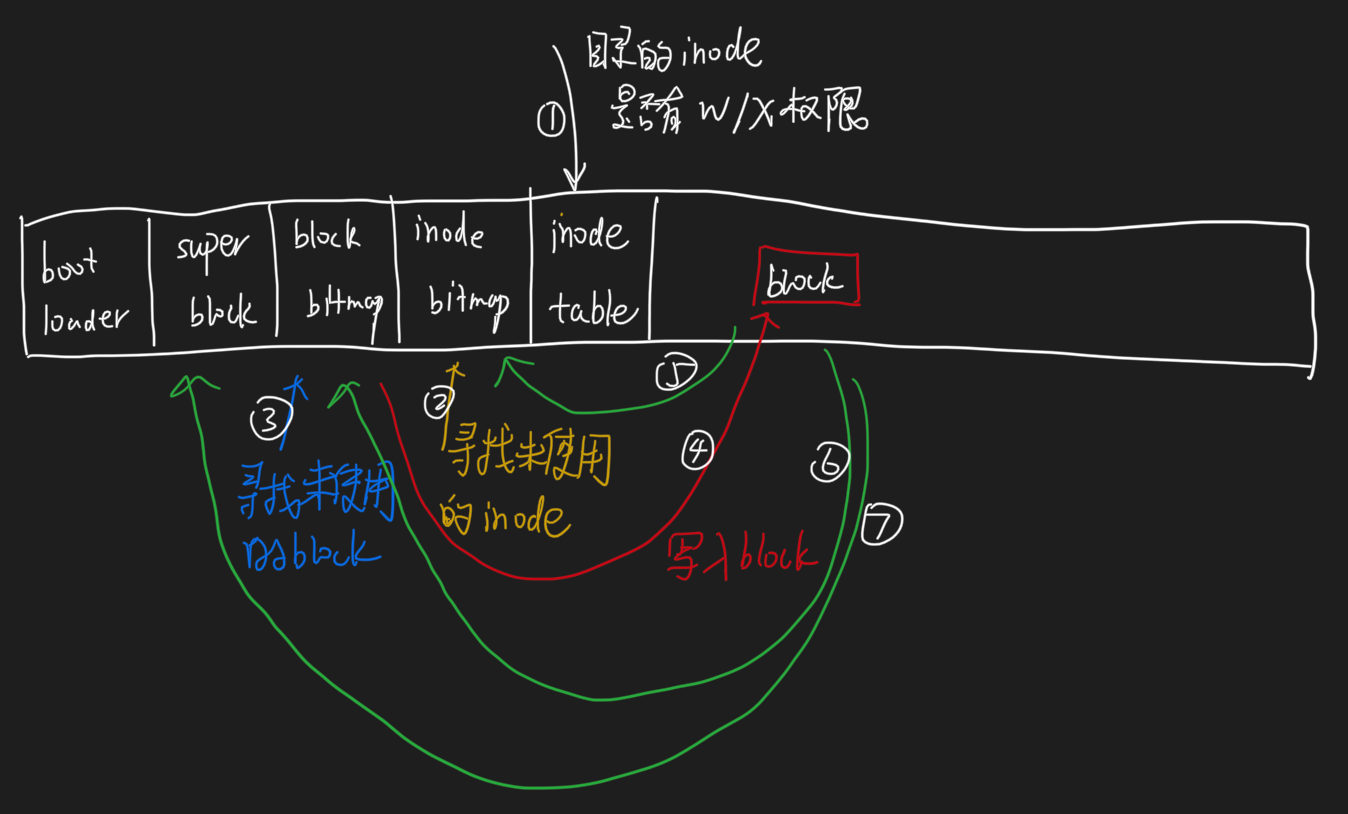 目录的inode
是否有 W/X权限
①
boot
loader
super
block
block
bitmap
inode
bitmap
inode
table
block
③
寻找未使用
的block
②
寻找未使用
的inode
⑤
④
写入block
⑥
⑦